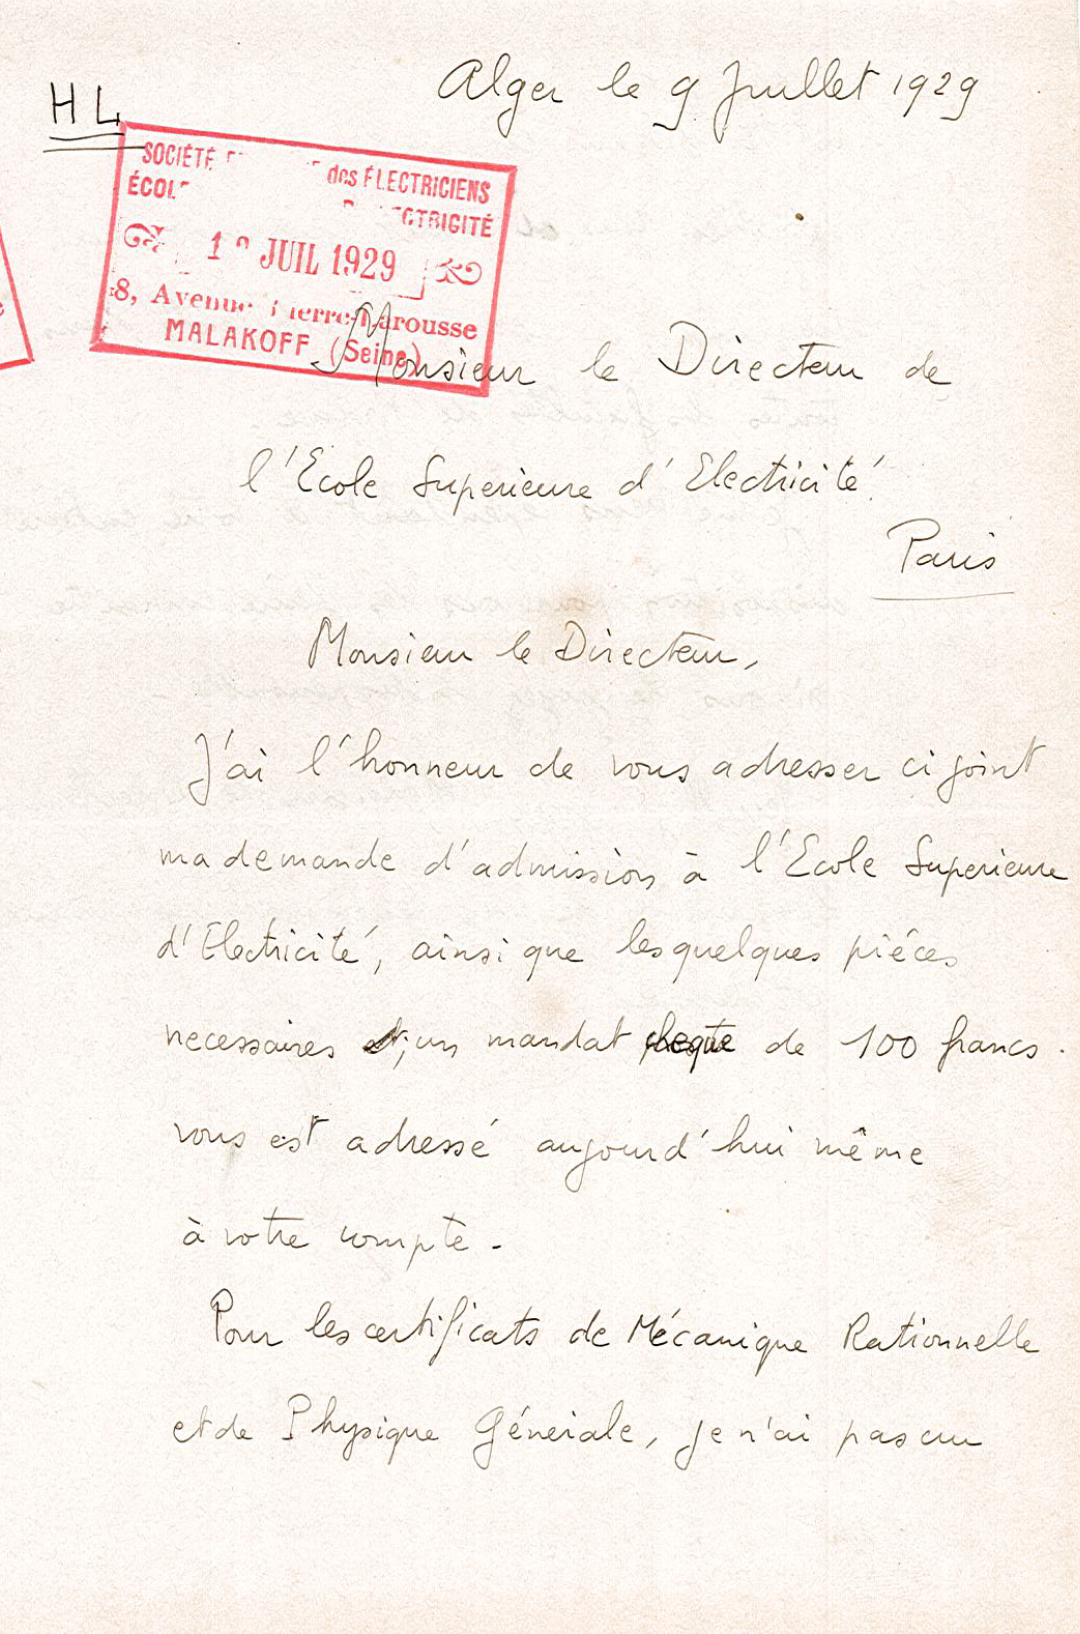 Alger le 9 Juillet 1929
HL
SOCIÉTÉ des ÉLECTRICIENS
ÉCOLE
JUIL 1929
8, Avenue Pierre-Larousse
MALAKOFF (Seine)
Monsieur le Directeur de
l'Ecole Superieure d'Electricité.
Paris
Monsieur le Directeur,
J'ai l'honneur de vous adresser ci joint
ma demande d'admission à l'Ecole Superieure
d'Electricité, ainsi que les quelques piéces
necessaires et, un mandat cheque de 100 francs.
vous est adressé aujourd'hui même
à votre compte -
Pour les certificats de Mécanique Rationnelle
et de Physique Génerale, je n'ai pas cru